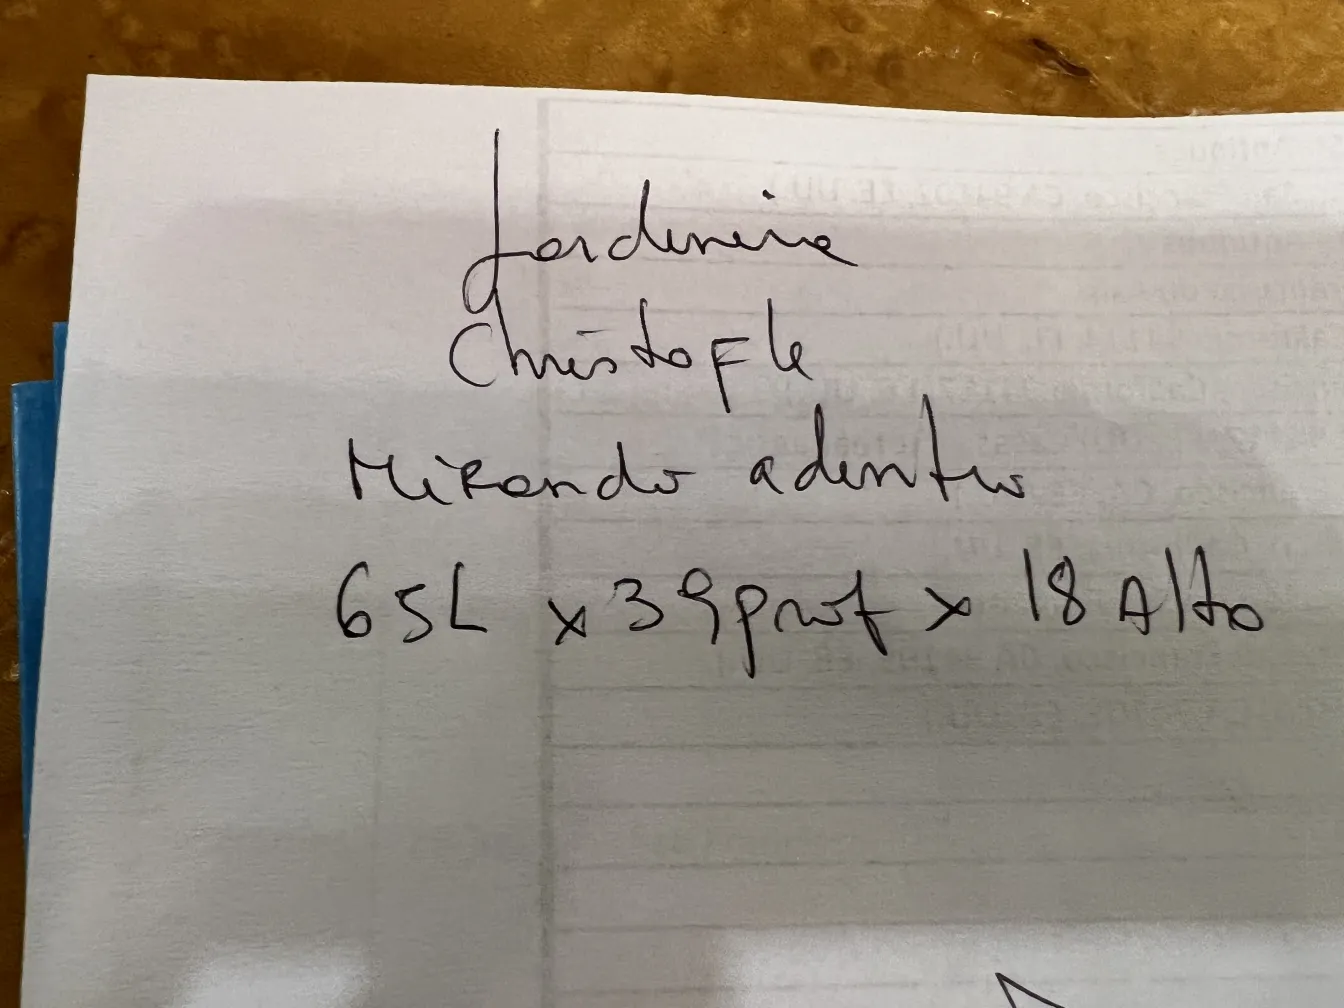 Jardinera
Christofle
Mirando adentro
65L x 39 prof x 18 Alto